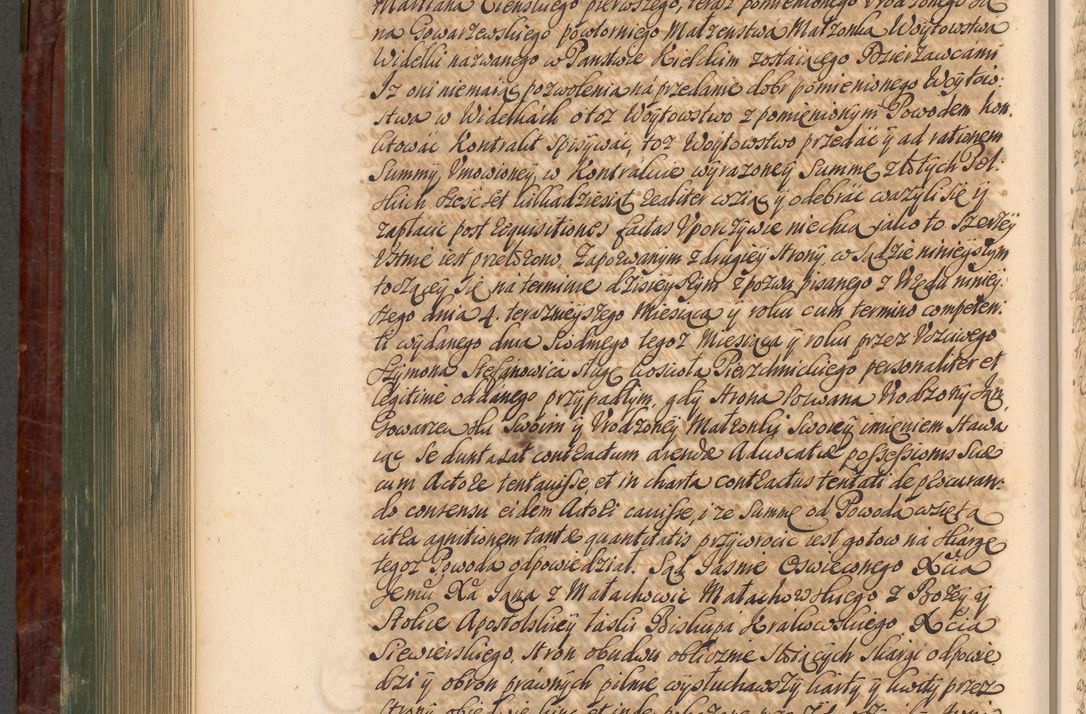 Małtiana Cienskiego pierwszego, teraz pomienionego Vrodzonego Ja
na Gowarzewskiego powtornego Małzenstwa Małzonka Woytowstwa
Widełki nazwanego w Panstwie Kielckim zostaiącego Dzierzawcami
Iz oni nie maiąc pozwolenia na przedanie dobr pomienionego Woytow:
stwa w Widełkach otoz Woytowstwo z pomienionym Powodem kon,
tktowac Kontrakt spisywać, toz Woytowstwo przedać y ad rationem
Summy, Vmowioney, w Kontrakcie wyrazoney Summę złotych Pol,
skich sześć set kilkadziesiąt realiter wziąć y odebrać wazyli się y
zapłacic post requisitiones factas Vporczywie niechcą jako to szerzey
Vstnie iest przełozono. Zapozwanym z drugiey strony w sądzie ninieyszym
toczącey się na terminie dzisieyszym z pozwu pisanego z Vrzędu niniey:
szego dnia 4. teraznieyszego Miesiąca y roku cum termino competen:
ti wydanego dnia siodmego tegoz Miesiąca y roku przez Vczciwego
Szymona Stefanowica sługę kosciola Pierzchnickiego personaliter et
legitime oddanego przypadłym, gdy strona pozwana Vrodzony Jan
Gowarzewski Swoim y Vrodzoney Małzonki Swoiey imieniem stawa
iąc Se duntaxat contractum arendæ Advocatiæ possessionis Suæ
cum Actore tentavisse et in charta contractus tentati de procuran:
do consensu eidem Actori cavisse, i ze Summę od Powoda wzięta
citra agnitionem tantæ quantitatis przywrocic iest gotow na skargę
tegoz Powoda odpowiedział. Sąd Jasnie Oswieconego Xcia
Jemci Xa Jana z Małachowic Małachowskiego z Bozey y
Stolice Apostolskiey łaski Biskupa Krakowskiego Xcia
Siewierskiego. stron obudwu oblicznie stoiących skargi odpowie
dzi y obron prawnych pilnie wysłuchawszy karty y kwity przez